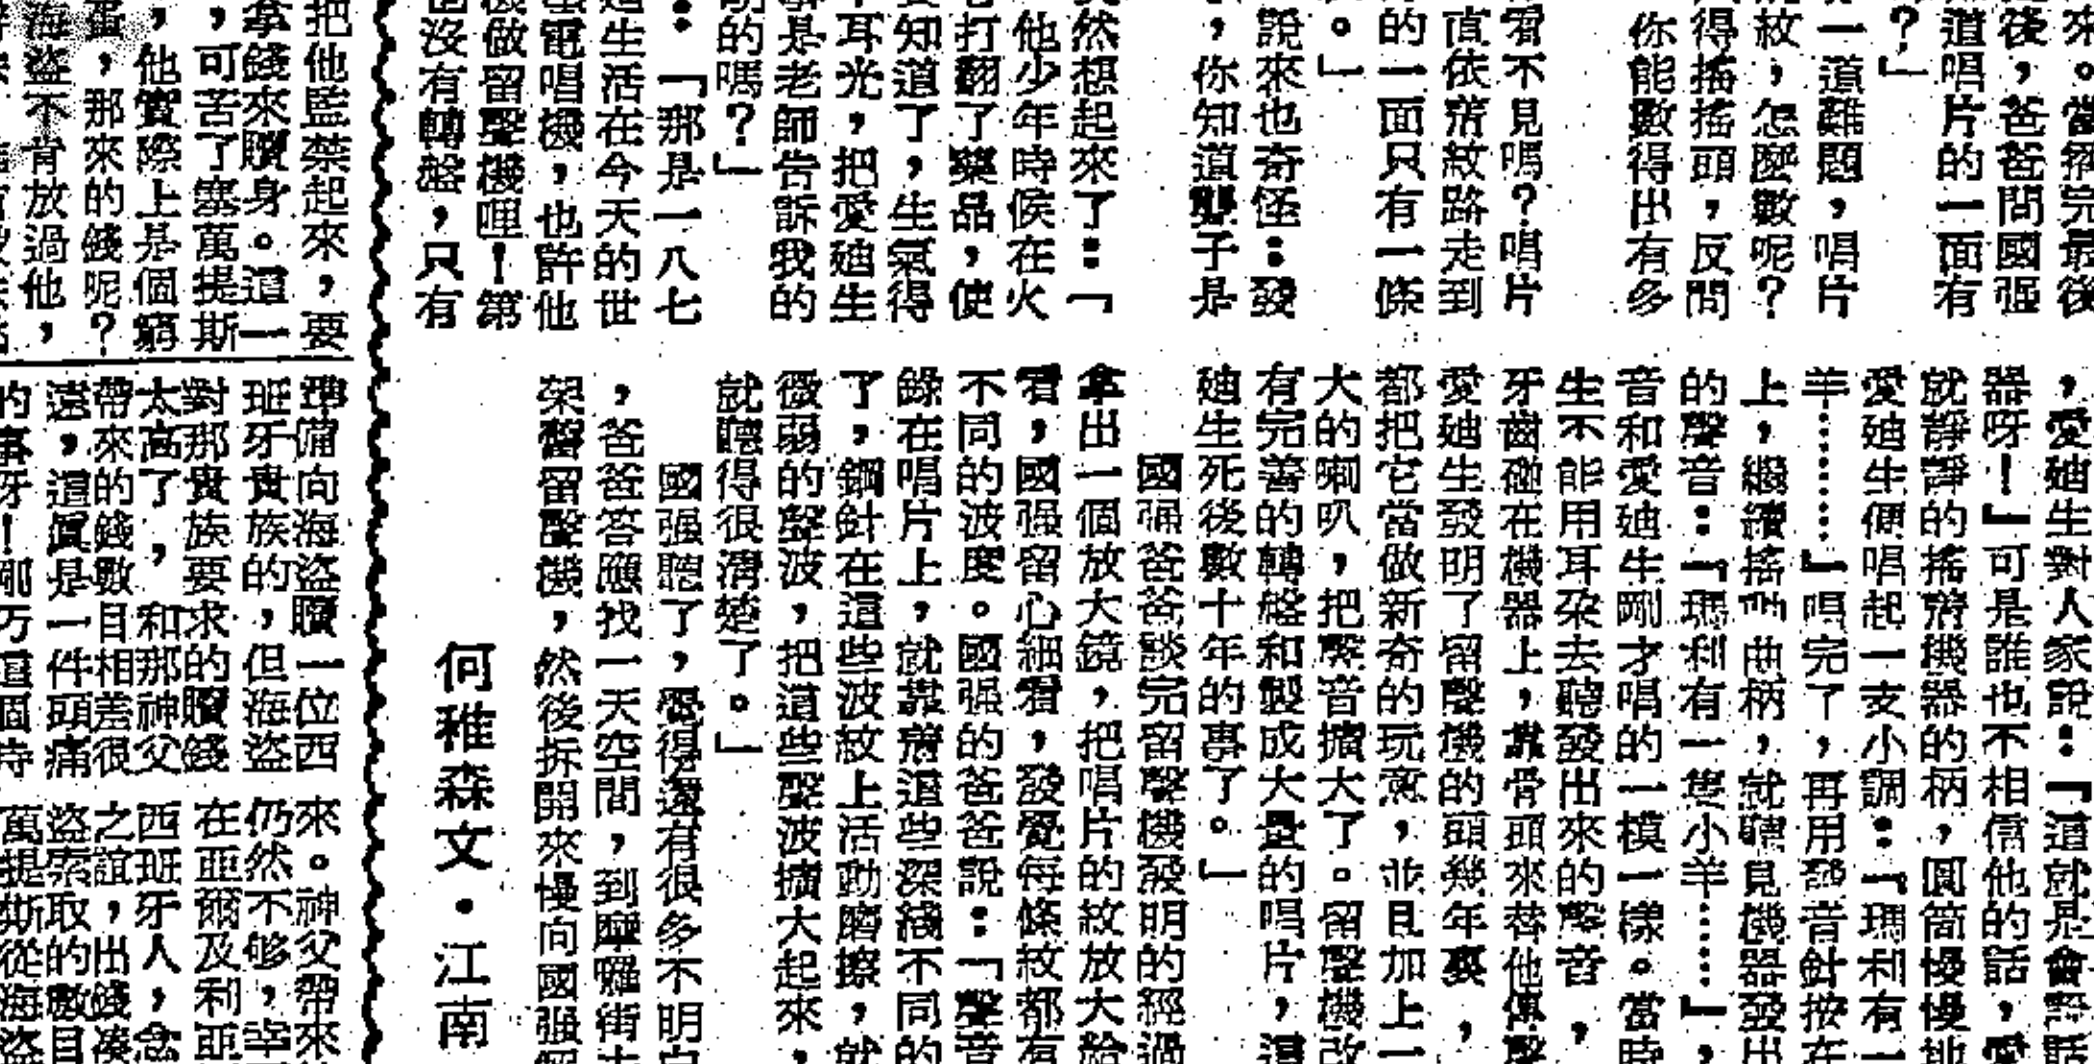 來。當完最後
後,爸爸問國强
道唱片的一面有
?」
一道難題,唱片
紋,怎麼數呢?
得搖搖頭,反問
你能數得出有多
看不見嗎?唱片
直依着紋路走到
的一面只有一條
。」
說來也奇怪:發
,你知道聾子是
然想起來了:「
他少年時候在火
打翻了藥品,使
知道了,生氣得
耳光,把愛廸生
是老師告訴我的
的嗎?」
:「那是一八七
生活在今天的世
電唱機,也許他
做留聲機哩!第
沒有轉盤,只有
,愛廸生對人家說:『這就是會說話
器呀!』可是誰也不相信他的話,愛
就靜靜的搖着機器的柄,圓筒慢慢地
愛廸生便唱起一支小調:『瑪利有一
羊……』唱完了,再用發音針按在
上,繼續搖曲柄,就聽見機器發出
的聲音:『瑪利有一隻小羊……』,
音和愛廸生剛才唱的一模一樣。當時
生不能用耳朶去聽發出來的聲音,
牙齒碰在機器上,靠骨頭來替他傳聲
愛廸生發明了留聲機的頭幾年裏,
都把它當做新奇的玩意,並且加上一
大的喇叭,把聲音擴大了。留聲機改
有完善的轉盤和製成大量的唱片,這
廸生死後數十年的事了。」
國强爸爸談完留聲機發明的經過
拿出一個放大鏡,把唱片的紋放大給
看,國强留心細看,發覺每條紋都有
不同的波度。國强的爸爸說:「聲音
錄在唱片上,就靠着這些深淺不同的
了,鋼針在這些波紋上活動磨擦,就
微弱的聲波,把這些聲波擴大起來,
就聽得很清楚了。」
國强聽了,覺得還有很多不明白
,爸爸答應找一天空間,到摩囉街去
架舊留聲機,然後拆開來慢向國强解
何稚森文・江南
把他監禁起來,要
拿錢來贖身。這一
,可苦了塞萬提斯
,他實際上是個窮
蛋,那來的錢呢?
海盜不肯放過他,
準備向海盜贖一位西
班牙貴族的,但海盜
對那貴族要求的贖錢
太高了,和那神父
帶來的錢數目相差很
遠,這眞是一件頭痛
的事呀!剛巧這個時
來。神父帶來
仍然不够,幸
在亞爾及利亞
西班牙人,念
之誼,出錢湊
盜索取的數目
萬提斯從海盜